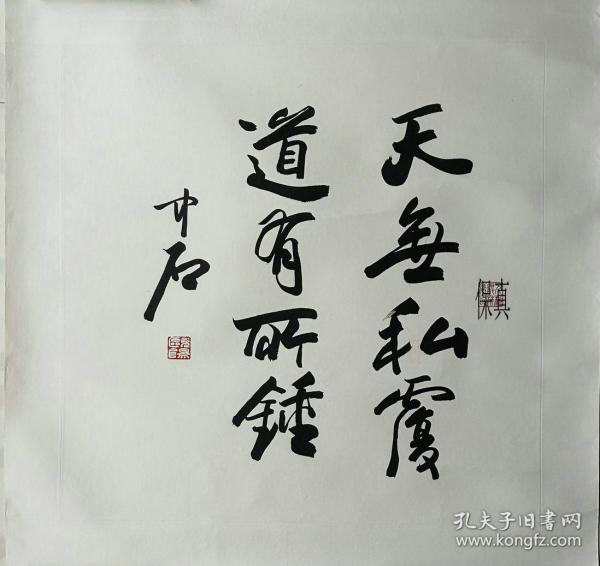 天無私覆
道有所鍾
中石
孔夫子旧書网
www.kongfz.com